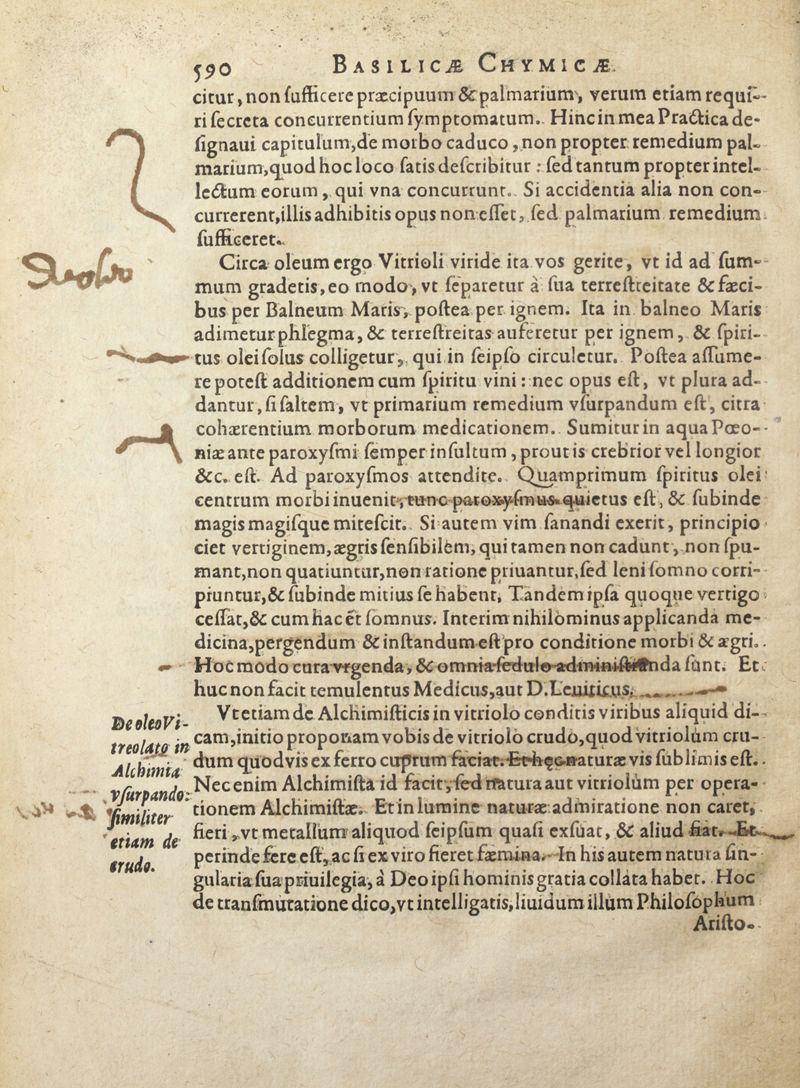 590 BASILICÆ CHYMICÆ.
citur, non ſufficere præcipuum & palmarium, verum etiam requi-
ri ſecreta concurrentium ſymptomatum. Hinc in mea Practica de-
ſignaui capitulum, de morbo caduco, non propter remedium pal-
marium, quod hoc loco ſatis deſcribitur: ſed tantum propter intel-
lectum eorum, qui vna concurrunt. Si accidentia alia non con-
currerent, illis adhibitis opus non eſſet, ſed palmarium remedium
ſufficeret.
Circa oleum ergo Vitrioli viride ita vos gerite, vt id ad ſum-
mum gradetis, eo modo, vt ſeparetur à ſua terreſtreitate & fæci-
bus per Balneum Maris, poſtea per ignem. Ita in balneo Maris
adimetur phlegma, & terreſtreitas auferetur per ignem, & ſpiri-
tus olei ſolus colligetur, qui in ſeipſo circuletur. Poſtea aſſume-
re poteſt additionem cum ſpiritu vini: nec opus eſt, vt plura ad-
dantur, ſi ſaltem, vt primarium remedium vſurpandum eſt, citra
cohærentium morborum medicationem. Sumitur in aqua Pœo-
niæ ante paroxyſmi ſemper inſultum, prout is crebrior vel longior
&c. eſt. Ad paroxyſmos attendite. Quamprimum ſpiritus olei
centrum morbi inuenit, tunc paroxyſmus quietus eſt, & ſubinde
magis magiſque miteſcit. Si autem vim ſanandi exerit, principio
ciet vertiginem, ægris ſenſibilem, qui tamen non cadunt, non ſpu-
mant, non quatiuntur, non ratione priuantur, ſed leni ſomno corri-
piuntur, & ſubinde mitius ſe habent. Tandem ipſa quoque vertigo
ceſſat, & cum hac et ſomnus. Interim nihilominus applicanda me-
dicina, pergendum & inſtandum eſt pro conditione morbi & ægri.
Hoc modo cura vrgenda, & omnia ſedulo adminiſtranda ſunt. Et
huc non facit temulentus Medicus, aut D. Leuiticus.
De oleo Vi-
treolato in
Alchimia
vſurpando:
ſimiliter
etiam de
crudo.
Vt etiam de Alchimiſticis in vitriolo conditis viribus aliquid di-
cam, initio proponam vobis de vitriolo crudo, quod vitriolum cru-
dum quodvis ex ferro cuprum faciat. Et hęc naturæ vis ſublimis eſt.
Nec enim Alchimiſta id facit, ſed natura aut vitriolum per opera-
tionem Alchimiſtæ. Et in lumine naturæ admiratione non caret,
fieri, vt metallum aliquod ſeipſum quaſi exſuat, & aliud fiat. Et
perinde fere eſt, ac ſi ex viro fieret fæmina. In his autem natura ſin-
gularia ſua priuilegia, à Deo ipſi hominis gratia collata habet. Hoc
de tranſmutatione dico, vt intelligatis, liuidum illum Philoſophum
Ariſto-